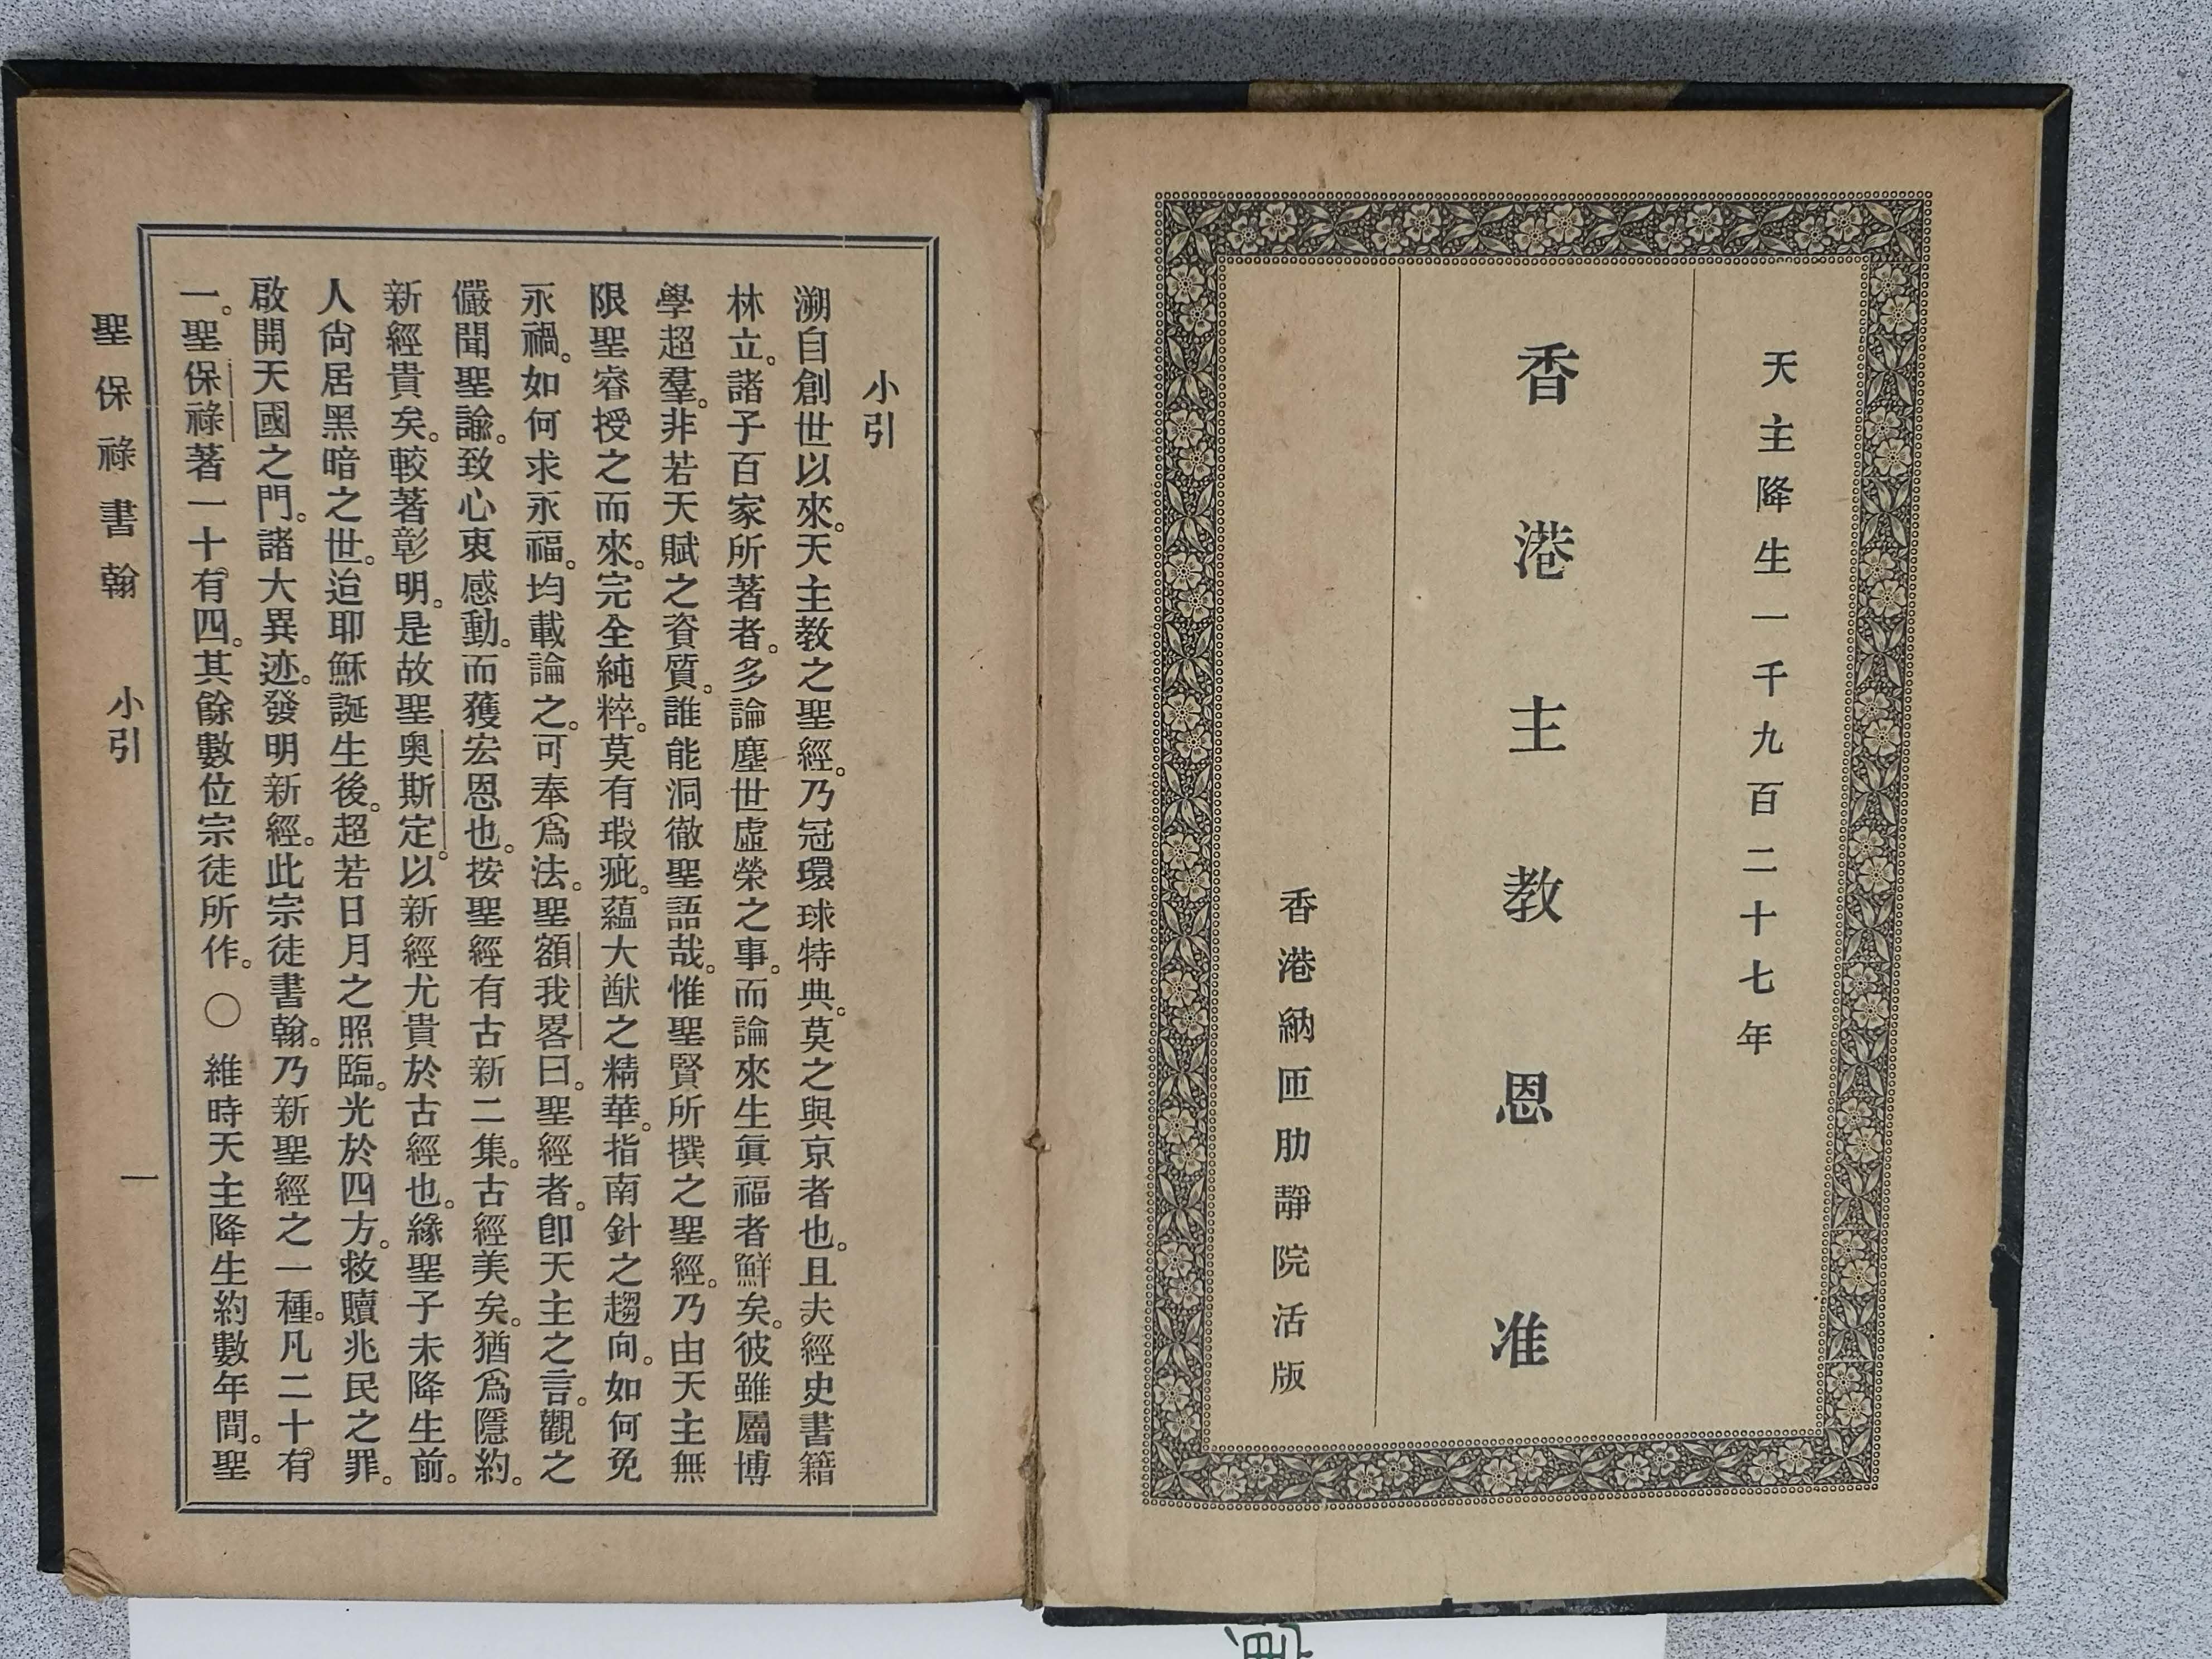 天主降生一千九百二十七年
香港主教恩准
香港納匝肋靜院活版
小引
溯自創世以來。天主教之聖經。乃冠環球特典。莫之與京者也。且夫經史書籍
林立。諸子百家所著者。多論塵世虛榮之事。而論來生眞福者鮮矣。彼雖屬博
學超羣。非若天賦之資質。誰能洞徹聖語哉。惟聖賢所撰之聖經。乃由天主無
限聖睿授之而來。完全純粹。莫有瑕疵。蘊大猷之精華。指南針之趨向。如何免
永禍。如何求永福。均載論之。可奉爲法。聖額我畧曰。聖經者。卽天主之言。觀之
儼聞聖諭。致心衷感動。而獲宏恩也。按聖經有古新二集。古經美矣。猶爲隱約。
新經貴矣。較著彰明。是故聖奧斯定。以新經尤貴於古經也。緣聖子未降生前。
人尙居黑暗之世。迨耶穌誕生後。超若日月之照臨。光於四方。救贖兆民之罪。
啟開天國之門。諸大異迹。發明新經。此宗徒書翰。乃新聖經之一種。凡二十有
一。聖保祿著一十有四。其餘數位宗徒所作。〇維時天主降生約數年間。聖
聖保祿書翰 小引 一